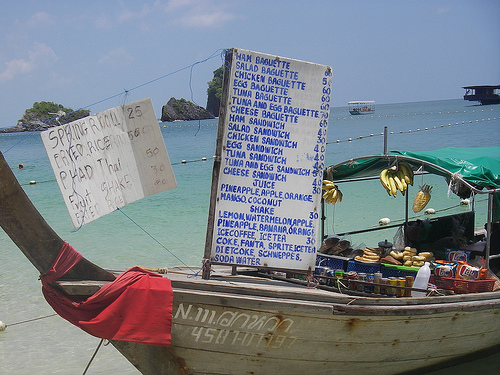 SPRING ROLL 25
FRIED RICE
PHAD Thai 50
FRUIT SHAKE
HAM BAGUETTE
SALAD BAGUETTE
CHICKEN BAGUETTE
EGG BAGUETTE
TUNA BAGUETTE
TUNA AND EGG BAGUETTE
CHEESE BAGUETTE
HAM SANDWICH
SALAD SANDWICH
CHICKEN SANDWICH
EGG SANDWICH
TUNA SANDWICH
TUNA AND EGG SANDWICH
CHEESE SANDWICH
JUICE
PINEAPPLE, APPLE, ORANGE,
MANGO, COCONUT 30
SHAKE
LEMON, WATERMELON, APPLE
PINEAPPLE, BANANA, ORANGE 30
ICE COFFEE, ICE TEA 30
COKE, FANTA, SPRITE, ICE TEA
DIET COKE, SCHWEPPES,
SODA WATER